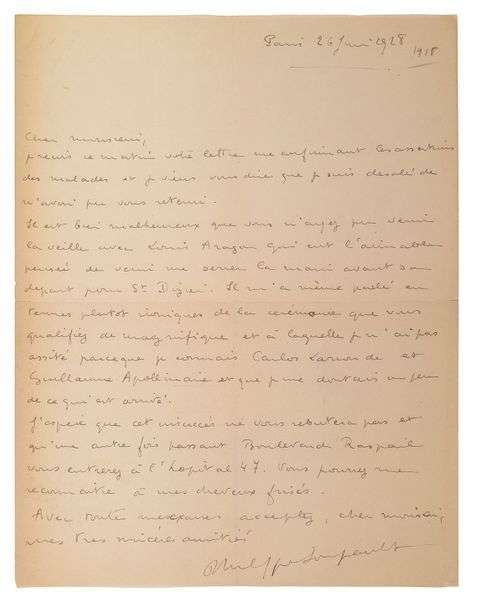 Paris 26 Juin 1928
1918
Cher monsieur,
je reçois ce matin votre lettre me confirmant les assertions
des malades et je viens vous dire que je suis désolé de
n'avoir pu vous retenir.
Il est bien malheureux que vous n'ayez pu venir
la veille avec Louis Aragon qui eut l'aimable
pensée de venir me serrer la main avant son
départ pour St Dizier. Il m'a même parlé en
termes plutôt ironiques de la cérémonie que vous
qualifiez de magnifique et à laquelle je n'ai pas
assisté parceque je connais Carlos Larronde et
Guillaume Apollinaire et que je me doutais un peu
de ce qui est arrivé.
J'espère que cet insuccès ne vous rebutera pas et
qu'une autre fois passant Boulevard Raspail
vous entrerez à l'hopital 47. Vous pourrez me
reconnaitre à mes cheveux frisés.
Avec toute mes excuses acceptez, cher monsieur,
mes très sincères amitiés
Philippe Soupault